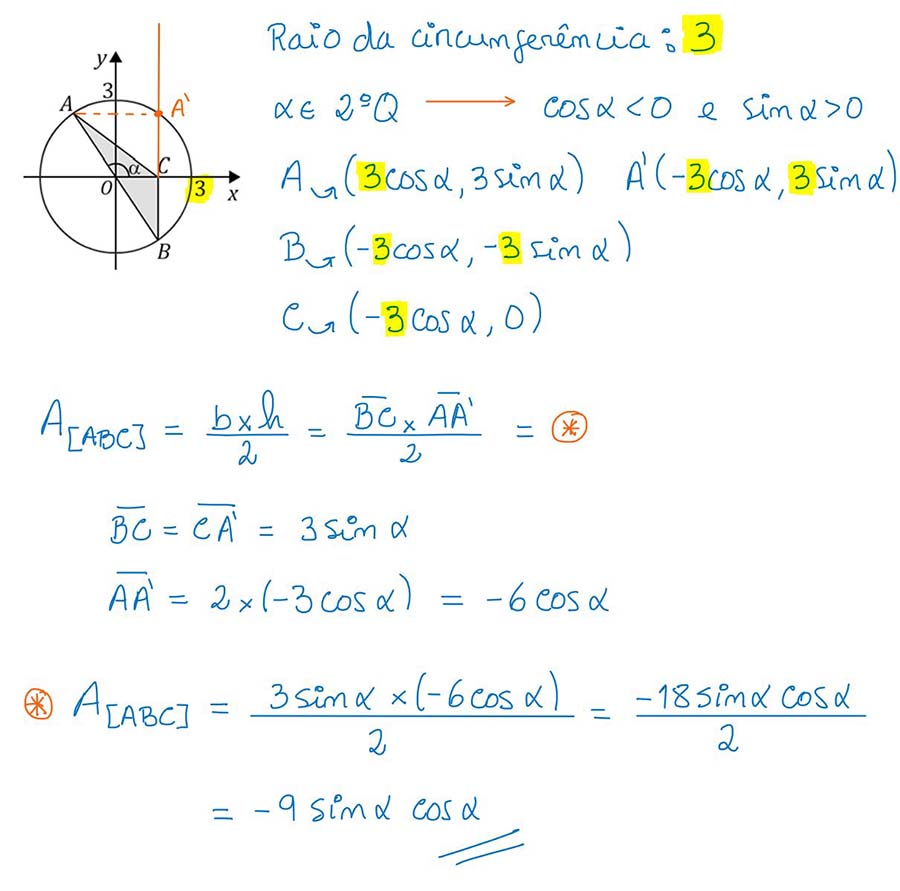 Raio da circunferência: 3
y
3
A
A'
α
C
O
3
x
B
α ∈ 2ºQ ⟶ cosα < 0 e sinα > 0
A ⤻ (3cosα, 3sinα) A'(-3cosα, 3sinα)
B ⤻ (-3cosα, -3sinα)
C ⤻ (-3cosα, 0)
A[ABC] = b×h/2 = B̅C̅ × A̅A̅'/2 = ⊛
B̅C̅ = C̅A̅' = 3sinα
A̅A̅' = 2×(-3cosα) = -6cosα
⊛ A[ABC] = 3sinα×(-6cosα)/2 = -18sinα cosα/2
= -9 sinα cosα